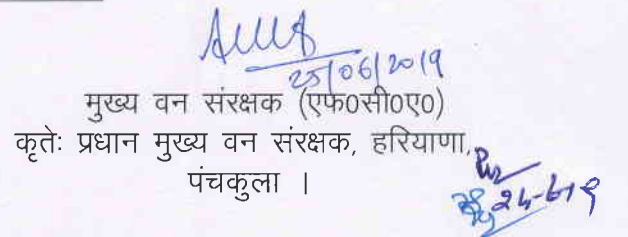 25/06/2019
मुख्य वन संरक्षक (एफ0सी0ए0)
कृतेः प्रधान मुख्य वन संरक्षक, हरियाणा,
पंचकुला ।
24-6-19